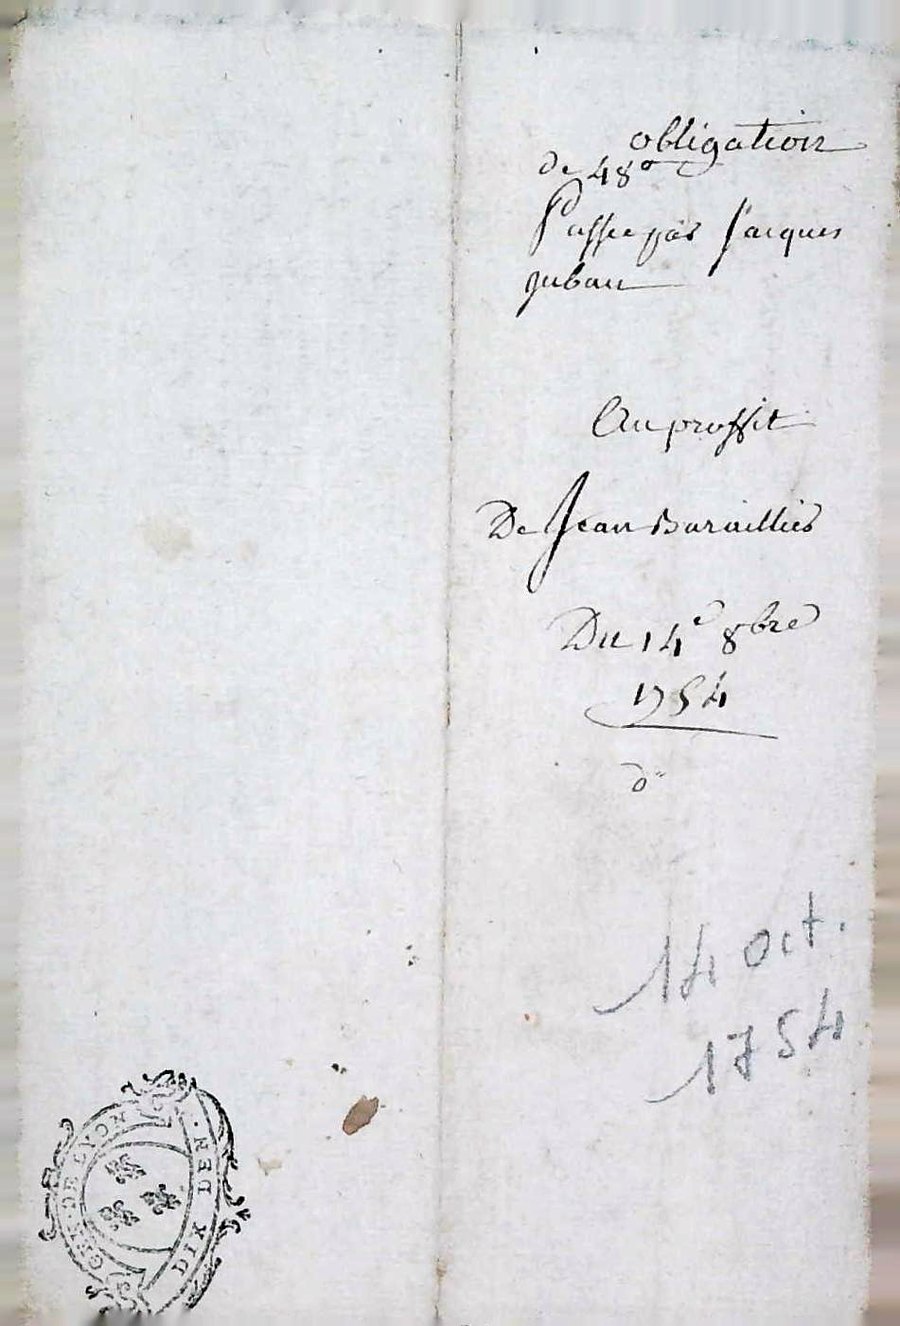 obligation
de 48º
Passee par Jacques
juban
Au proffit
De Jean Baraillier
Du 14e 8bre
1754
14 Oct.
1754
GEN · DE LYON
DIX DEN ·